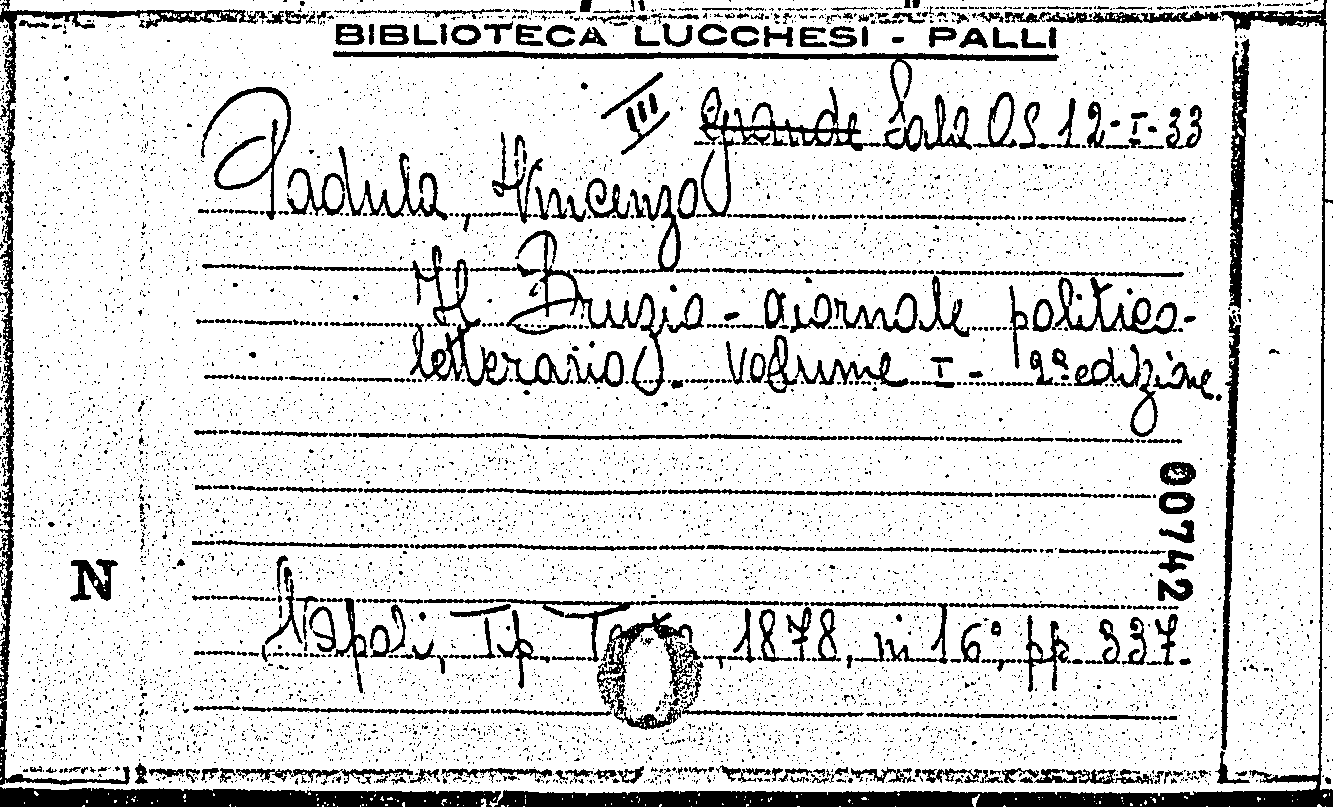 BIBLIOTECA LUCCHESI - PALLI
III Grande Sala O.S. 12-I-33
Padula, Vincenzo
Il Bruzio - giornale politico-
letterario. Volume I - 2ª edizione.
00742
N
Napoli, Tip. , 1878, in 16°, pp. 337.